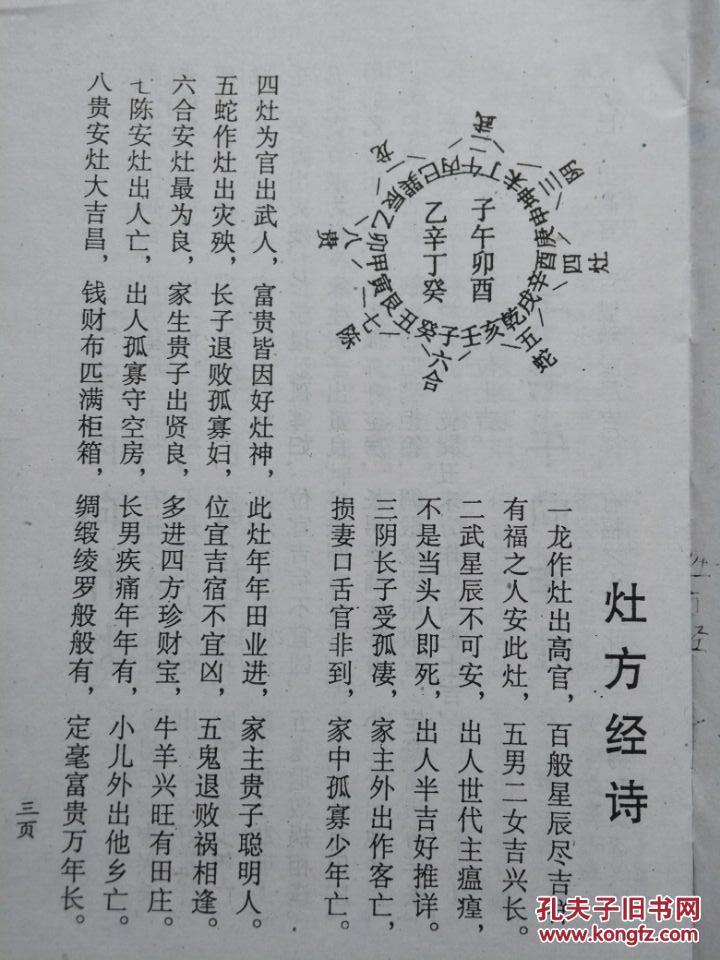 灶方经诗
一龙作灶出高官,百般星辰尽吉
有福之人安此灶,五男二女吉兴长。
二武星辰不可安,出人世代主瘟㾮,
不是当头人即死,出人半吉好推详。
三阴长子受孤凄,家主外出作客亡,
损妻口舌官非到,家中孤寡少年亡。
子午卯酉
乙辛丁癸
子壬亥乾戌辛酉庚申坤未丁午丙巳巽辰乙卯甲寅艮丑癸
一龙
二武
三阴
四灶
五蛇
六合
七陈
八贵
四灶为官出武人,富贵皆因好灶神,此灶年年田业进,家主贵子聪明人。
五蛇作灶出灾殃,长子退败孤寡妇,位宜吉宿不宜凶,五鬼退败祸相逢。
六合安灶最为良,家生贵子出贤良,多进四方珍财宝,牛羊兴旺有田庄。
七陈安灶出人亡,出人孤寡守空房,长男疾痛年年有,小儿外出他乡亡。
八贵安灶大吉昌,钱财布匹满柜箱,绸缎绫罗般般有,定毫富贵万年长。
三页
孔夫子旧书网
www.kongfz.com